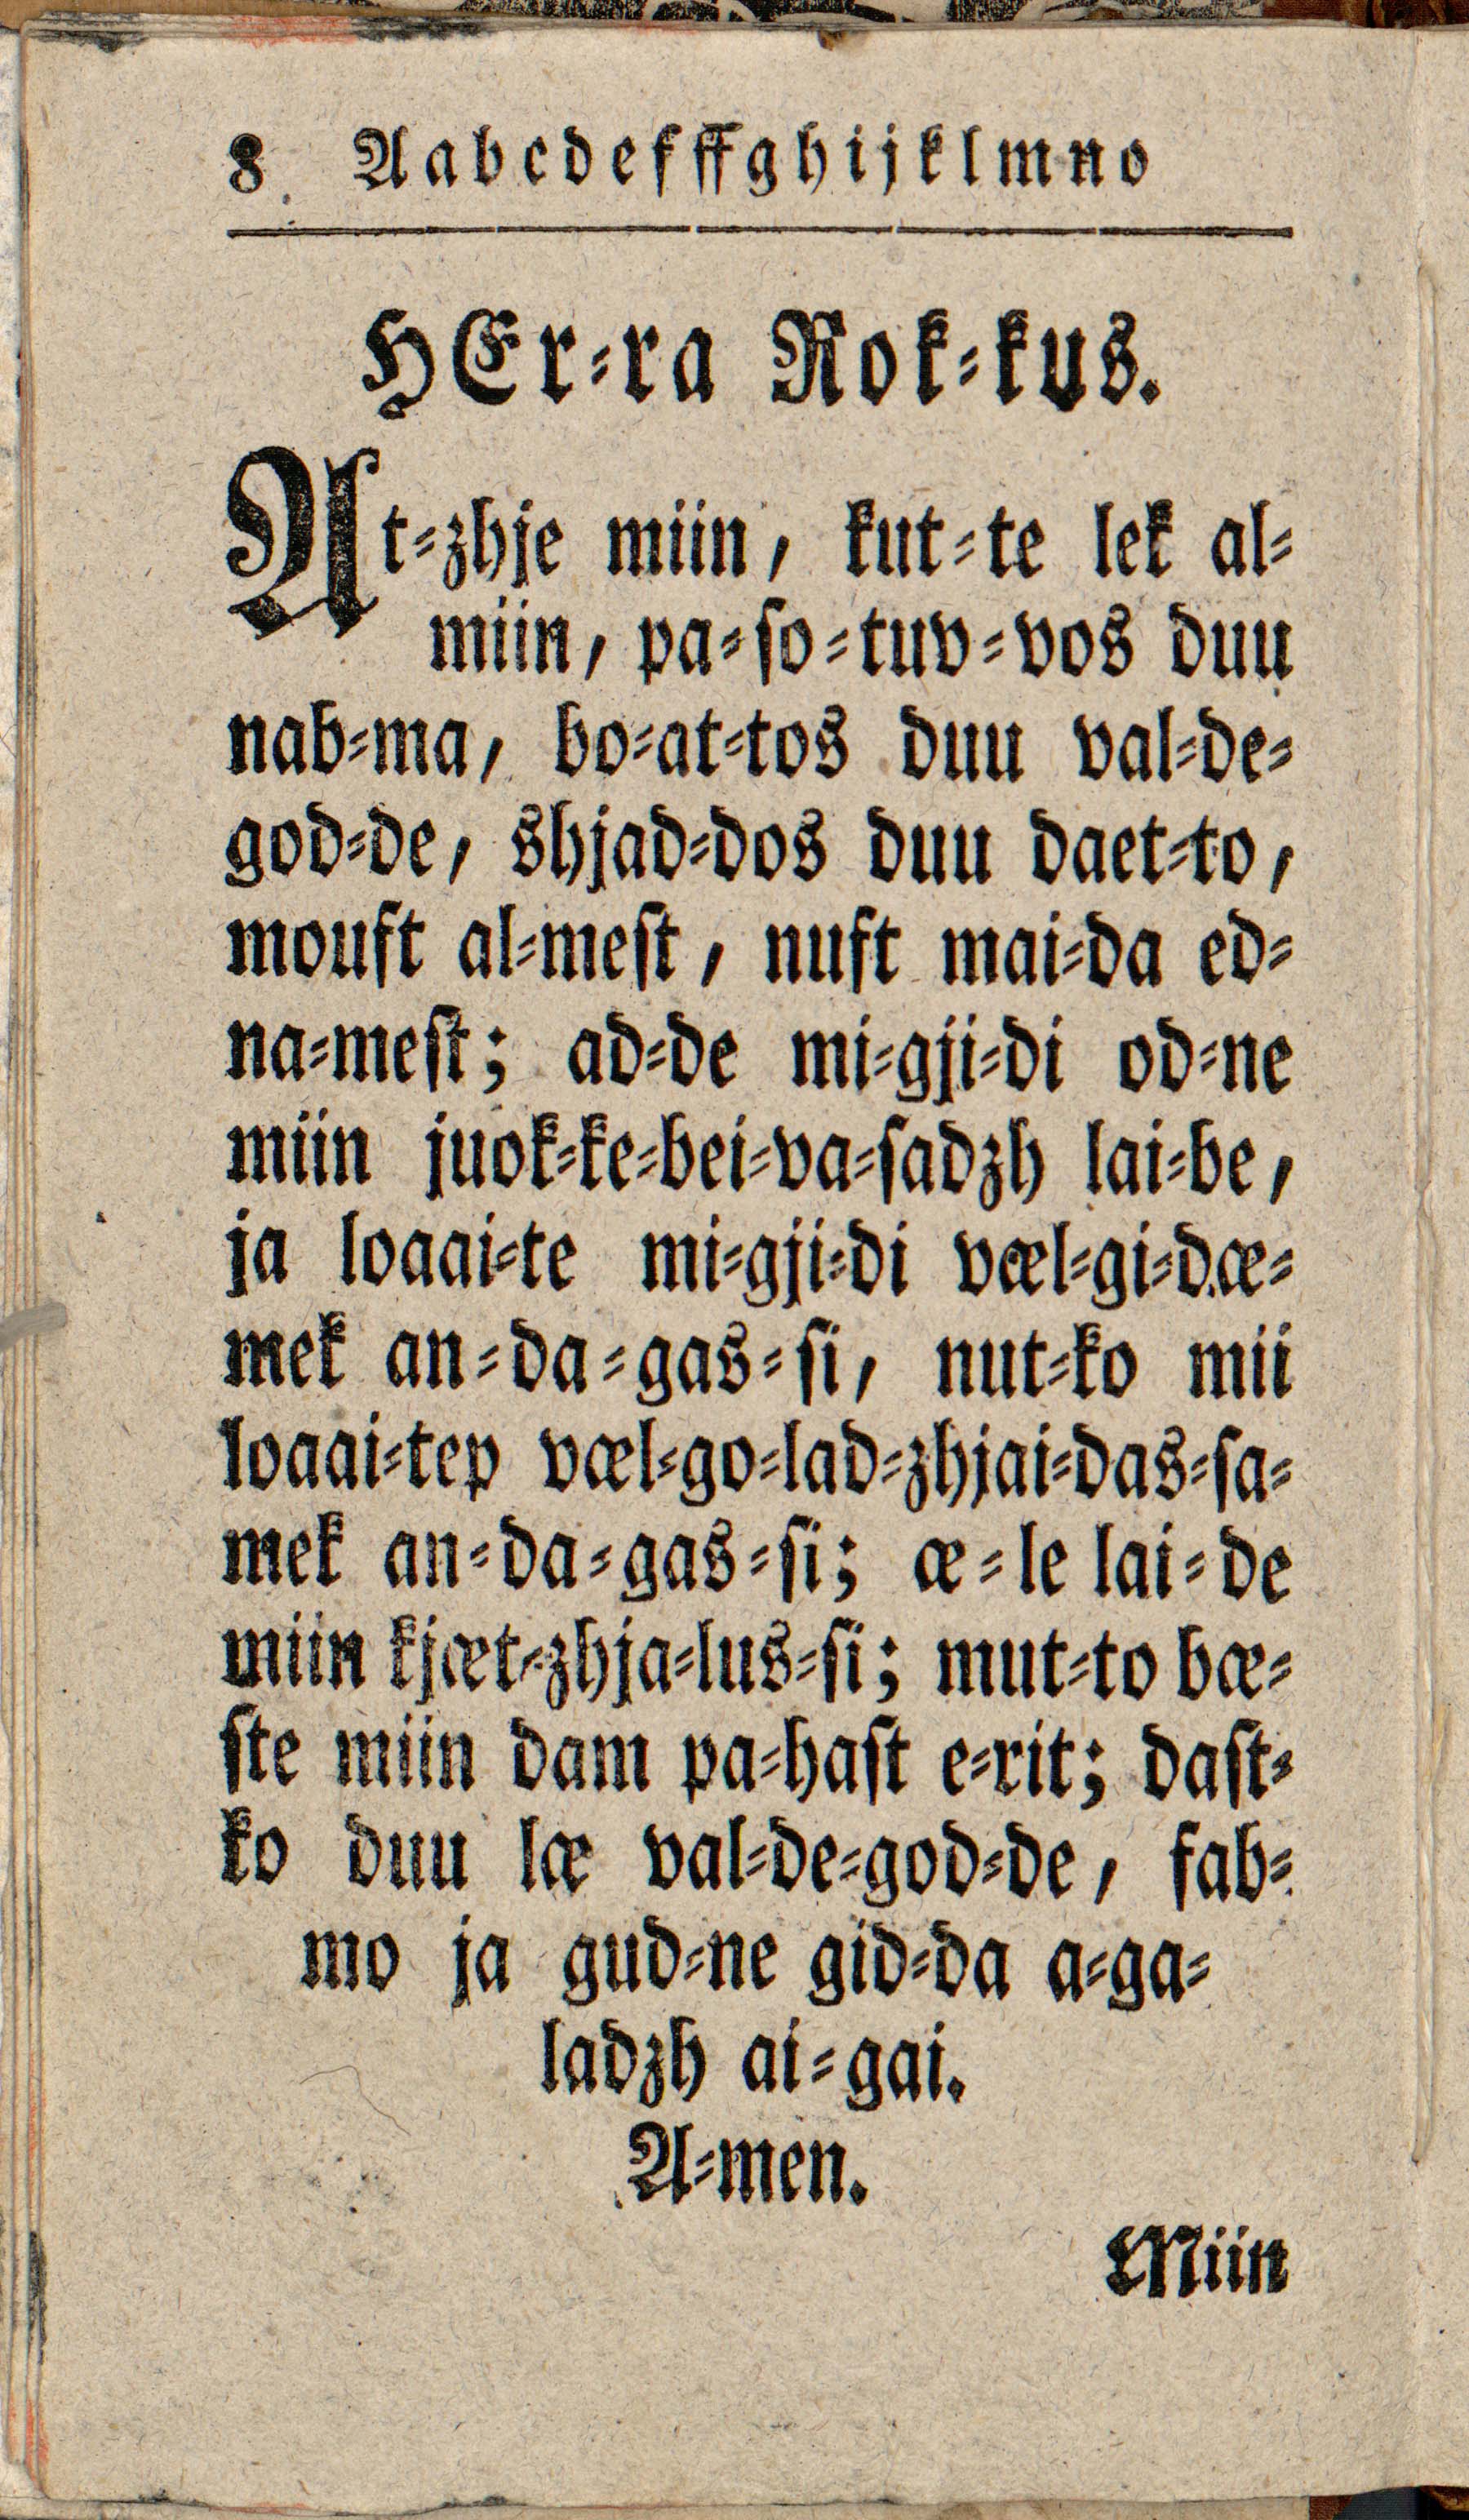 8 A a b c d e f ff g h i j k l m n o
HEr-ra Rok-kus.
At-zhje miin, kut-te lek al-
miin, pa-so-tuv-vos duu
nab-ma, bo-at-tos duu val-de-
god-de, shjad-dos duu daet-to,
mouft al-mest, nuft mai-da ed-
na-mest; ad-de mi-gji-di od-ne
miin juok-ke-bei-va-sadzh lai-be,
ja loaai-te mi-gji-di væl-gi-dæ-
mek an-da-gas-si, nut-ko mii
loaai-tep væl-go-lad-zhjai-das-sa-
mek an-da-gas-si; æ-le lai-de
miin kjæt-zhja-lus-si; mut-to bæ-
ste miin dam pa-hast e-rit; dast-
ko duu læ val-de-god-de, fab-
mo ja gud-ne gid-da a-ga-
ladzh ai-gai.
A-men.
Miin